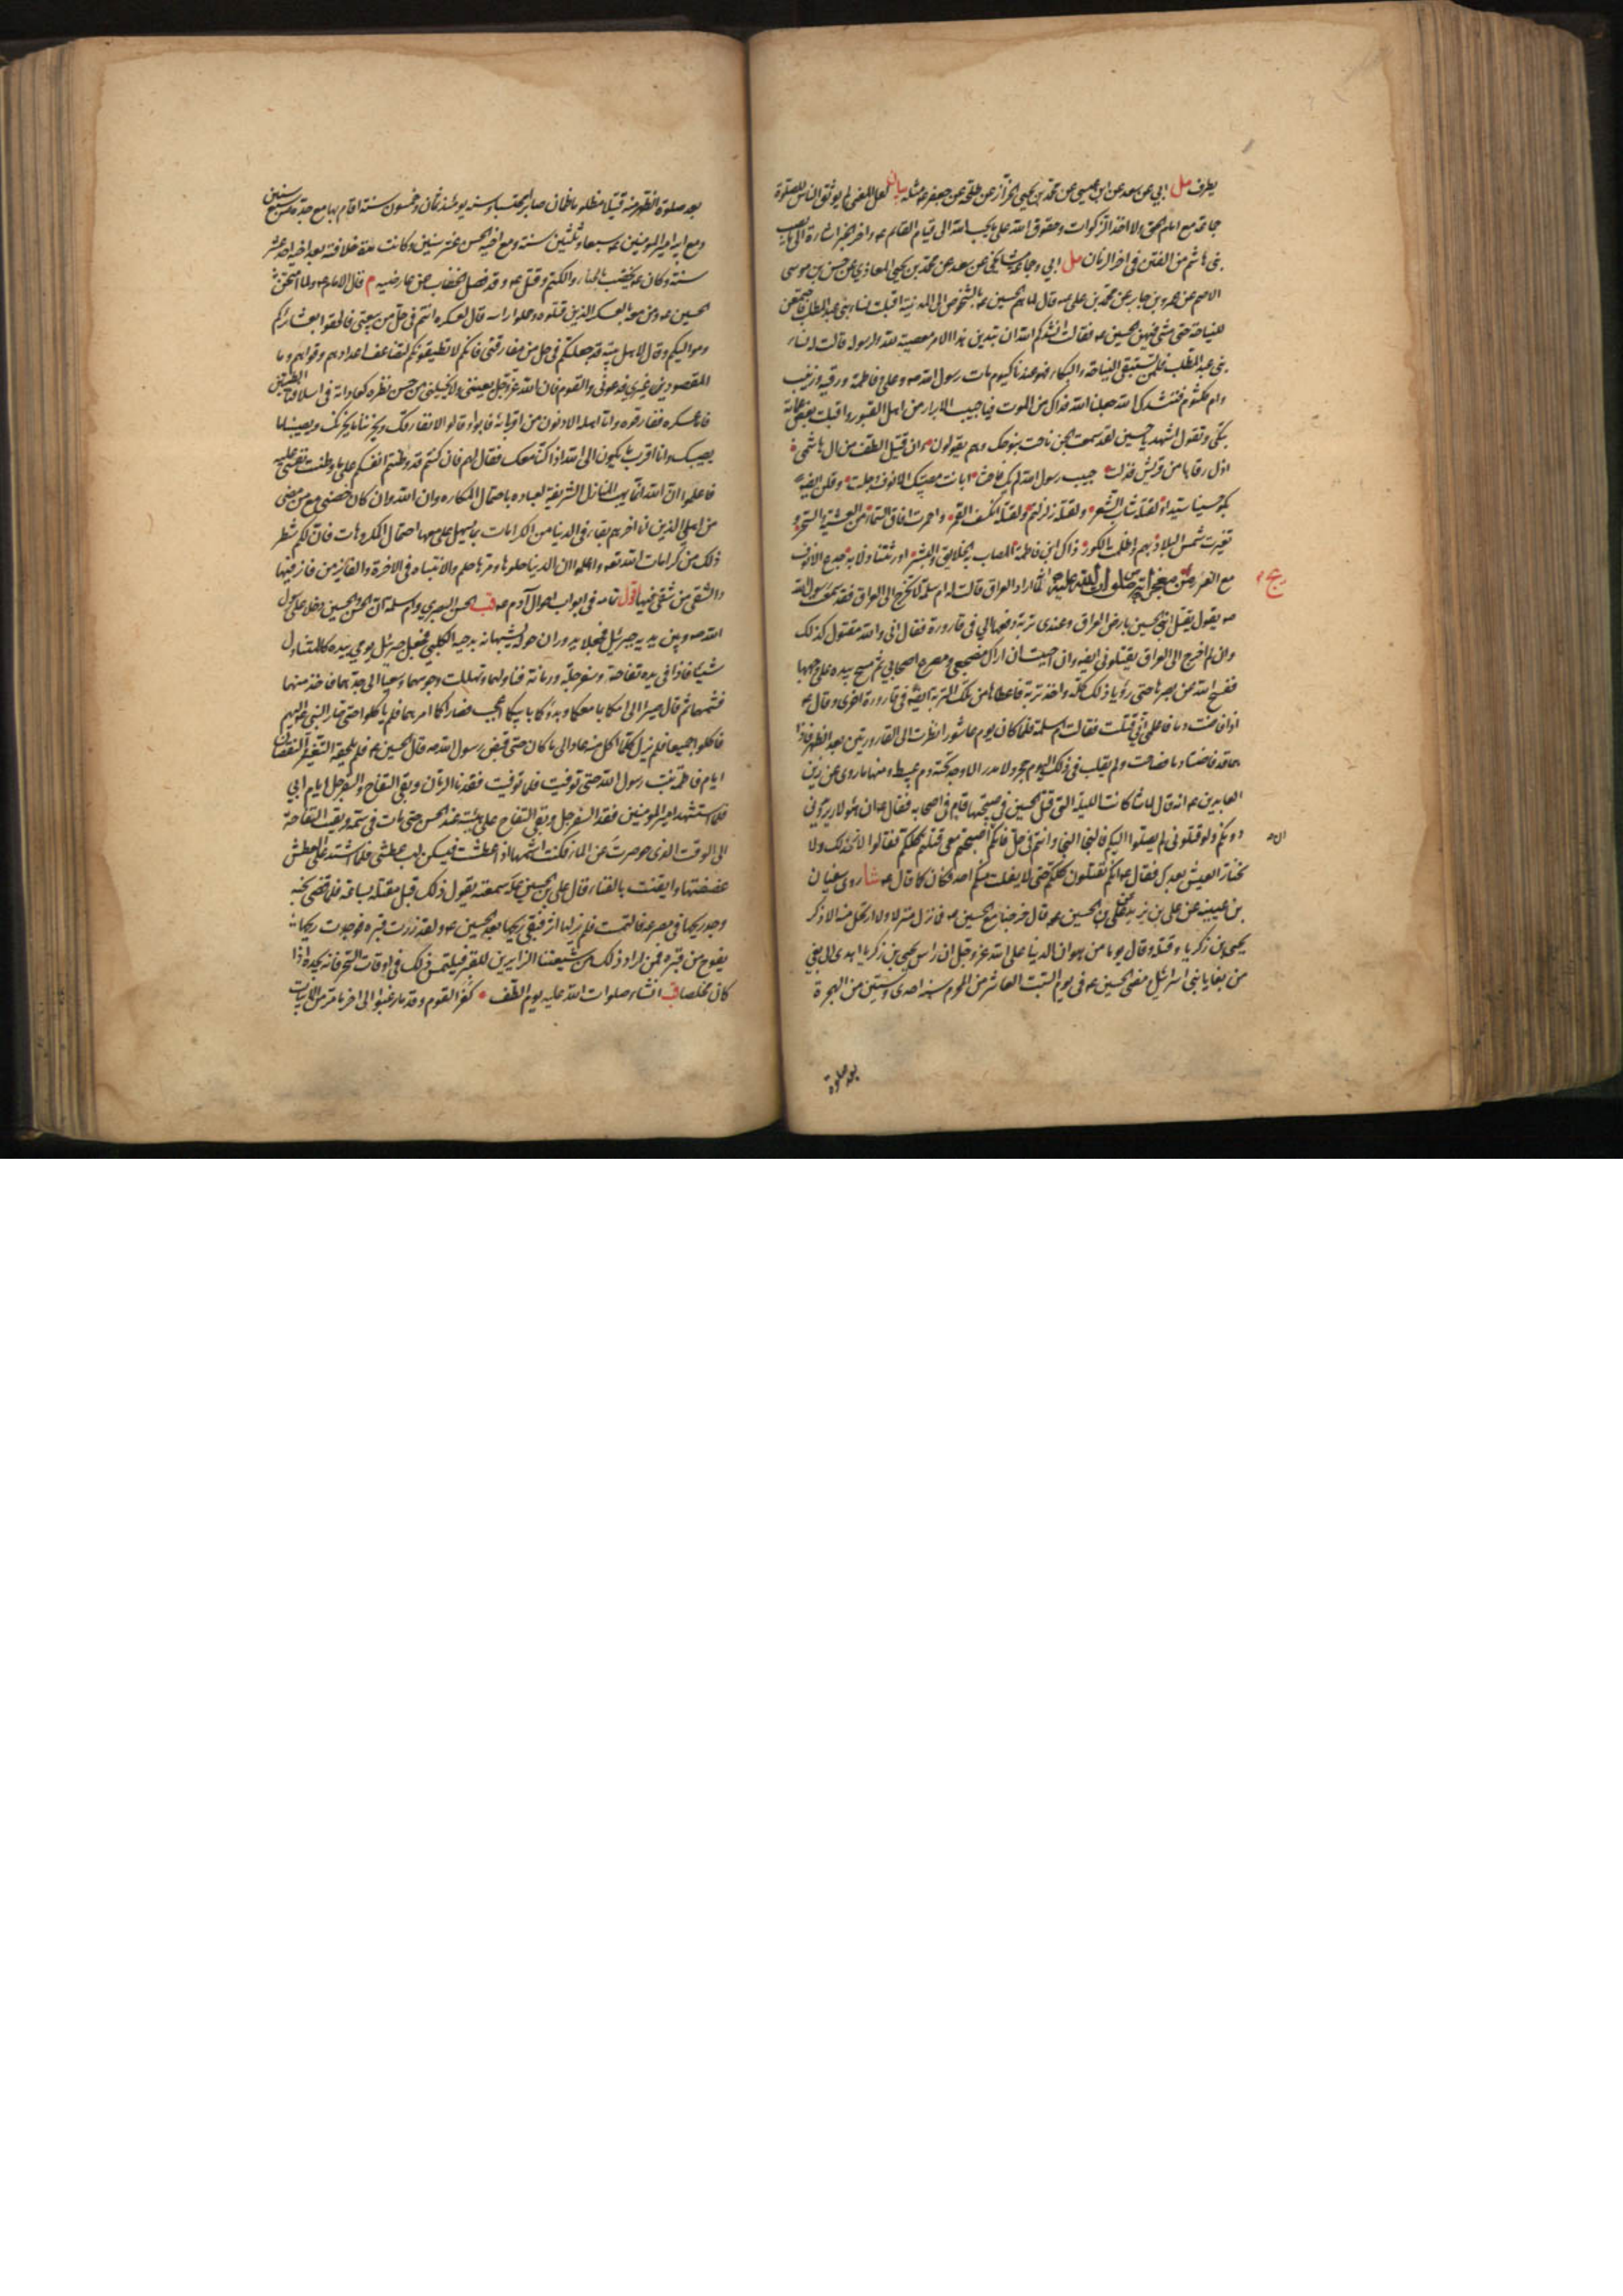 يطرف مل ابي عن سعد عن ابن عيسى عن محمد بن يحيى الخزاز عن طلحة عن جعفر ع مثله بيان لعل المعنى لا يوفق الناس للصلوة
جامعة مع امام الحق ولا اخذ الزكوات وحقوق الله على ما يحب الله الى قيام القائم ع واخر الخبر اشارة الى ما يصيب
بني هاشم من الفتن في اخر الزمان مل ابي وجماعة مشايخي عن سعد عن محمد بن يحيى المعاذي عن حسن بن موسى
الاصم عن عمرو بن جابر عن محمد بن علي ع قال لما هم الحسين ع بالشخوص الى المدينة اقبلت نساء بني عبد المطلب فاجتمعن
للنياحة حتى مشى فيهن الحسين ع فقال انشدكم الله ان تبدين هذا الامر معصية لله ولرسوله قالت له نساء
بني عبد المطلب فلمن تستبقي النياحة والبكاء فهو عندنا كيوم مات رسول الله ص وعلي وفاطمة ورقية وزينب
وام كلثوم فننشدك الله جعلنا الله فداك من الموت فيا حبيب الابرار من اهل القبور واقبلت بعض عماته
تبكي وتقول اشهد يا حسين لقد سمعت الجن ناحت بنوحك وهم يقولون وان قتيل الطف من ال هاشم
اذل رقابا من قريش فذلت حبيب رسول الله لم يك فاحشا ابانت مصيبتك الانوف وجلت وقلن ايضا
بكوا حسينا سيدا ولقتله شاب الشعر ولقتله زلزلتم ولقتله انكسف القمر واحمرت افاق السماء من العشية والسحر
وتغيرت شمس البلاد بهم واظلمت الكور ذاك ابن فاطمة المصاب به الخلايق والبشر اورثتنا ذلا به جدع الانوف
مع الغرر ومن معجزاته صلوات الله عليه انه لما اراد العراق قالت له ام سلمة لا تخرج الى العراق فقد سمعت رسول الله
يج
ص يقول يقتل ابني الحسين بارض العراق وعندي تربة دفعها الي في قارورة فقال اني والله مقتول كذلك
وان لم اخرج الى العراق يقتلوني ايضا وان احببت ان اراك مضجعي ومصرع اصحابي ثم مسح بيده على وجهها
ففسح الله عن بصرها حتى رؤيا ذلك كله واخذ تربة فاعطاها من تلك التربة ايضا في قارورة اخرى وقال ع
اذا فاضت دما فاعلمي اني قتلت فقالت ام سلمة فلما كان يوم عاشورا نظرت الى القارورتين بعد الظهر فاذا
هما قد فاضتا دما فصاحت ولم يقلب في ذلك اليوم حجر ولا مدر الا وجد تحته دم عبيط ومنها ما روي عن زين
العابدين ع انه قال لما كانت الليلة التي قتل الحسين في صبيحتها قام في اصحابه فقال ع ان هؤلاء يريدوني
دونكم ولو قتلوني لم يصلوا اليكم فالنجا النجا وانتم في حل فانكم ان اصبحتم معي قتلتم كلكم فقالوا لا نخذلك ولا
نختار العيش بعدك فقال ع انكم تقتلون كلكم حتى لا يفلت منكم احد فكان كما قال ع شا روى سفيان
بن عيينة عن علي بن يزيد عن علي بن الحسين ع قال خرجنا مع الحسين ع فما نزل منزلا ولا ارتحل منه الا ذكر
يحيى بن زكريا وقتله وقال يوما من هوان الدنيا على الله عز وجل ان راس يحيى بن زكريا اهدي الى بغي
من بغايا بني اسرائيل مضى الحسين ع في يوم السبت العاشر من المحرم سنة احدى وستين من الهجرة
بعد صلوة
بعد صلوة الظهر منه قتيلا مظلوما ظمان صابرا محتسبا وسنه يومئذ ثمان وخمسون سنة اقام بها مع جده سبع سنين
ومع ابيه امير المؤمنين ع سبعا وثلثين سنة ومع اخيه الحسن عشر سنين وكانت مدة خلافته بعد اخيه احد عشر
سنة وكان ع يخضب بالحناء والكتم وقتل ع وقد فصل الخضاب من عارضيه م قال الامام ع ولما امتحن
الحسين ع ومن معه بالعسكر الذين قتلوه وحملوا راسه قال لعسكره انتم في حل من بيعتي فالحقوا بعشائركم
ومواليكم وقال لاهل بيته قد جعلتكم في حل من مفارقتي فانكم لا تطيقونهم لتضاعف اعدادهم وقواهم وما
المقصود غيري فدعوني والقوم فان الله عز وجل يعينني ولا يخليني من حسن نظره كعاداته في اسلافنا الطيبين
فاما عسكره ففارقوه واما اهله الادنون من اقربائه فابوا وقالوا لا نفارقك ويحزننا ما يحزنك ويصيبنا ما
يصيبك وانا اقرب ما نكون الى الله اذا كنا معك فقال لهم فان كنتم قد وطنتم انفسكم على ما وطنت نفسي عليه
فاعلموا ان الله انما يهب المنازل الشريفة لعباده باحتمال المكاره وان الله وان كان خصني مع من مضى
من اهلي الذين انا اخرهم بقاء في الدنيا من الكرامات بما يسهل علي معها احتمال المكروهات فان لكم شطر
ذلك من كرامات الله تعالى واعلموا ان الدنيا حلوها ومرها حلم والانتباه في الاخرة والفائز من فاز فيها
والشقي من شقي فيها اقول تمامه في ابواب احوال آدم ع قب الحسن البصري وام سلمة ان الحسن والحسين دخلا على رسول
الله ص وبين يديه جبرئيل فجعلا يدوران حوله يشبهانه بدحية الكلبي فجعل جبرئيل يومي بيده كالمتناول
شيئا فاذا في يده تفاحة وسفرجلة ورمانة فناولهما وتهللت وجوههما وسعيا الى جدهما فاخذ منهما
فشمها ثم قال صيرا الى امكما بما معكما وبدؤكما بابيكما اعجب فصارا كما امرهما فلم ياكلوا حتى صار النبي ص اليهم
فاكلوا جميعا فلم يزل كلما اكل منه عاد الى ما كان حتى قبض رسول الله ص قال الحسين ع فلم يلحقه التغيير والنقصان
ايام فاطمة بنت رسول الله حتى توفيت فلما توفيت فقدنا الرمان وبقي التفاح والسفرجل ايام ابي
فلما استشهد امير المؤمنين فقد السفرجل وبقي التفاح على هيئته عند الحسن حتى مات في سمه وبقيت التفاحة
الى الوقت الذي حوصرت عن الماء فكنت اشمها اذا عطشت فيسكن لهب عطشي فلما اشتد علي العطش
عضضتها وايقنت بالفناء قال علي بن الحسين ع سمعته يقول ذلك قبل مقتله بساعة فلما قضى نحبه
وجد ريحها في مصرعه فالتمست فلم ير لها اثر فبقي ريحها بعد الحسين ع ولقد زرت قبره فوجدت ريحها
يفوح من قبره فمن اراد ذلك من شيعتنا الزايرين للقبر فليلتمس ذلك في اوقات السحر فانه يجده اذا
كان مخلصا قب انشاء صلوات الله عليه يوم الطف كفر القوم وقدما رغبوا الى اخر ما مر من الابيات